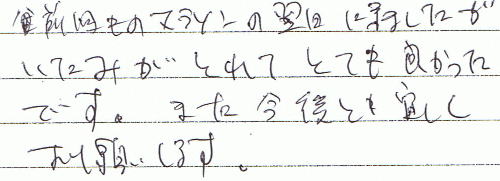 前回そのスライソの翌日に来ましたが
いたみがとれてとても良かった
です。また今後とも宜しく
お願いします。